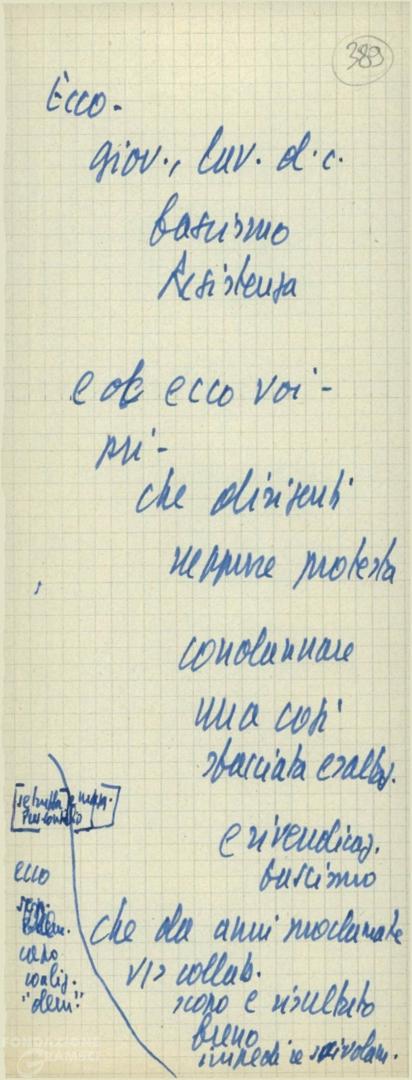 389
Ecco-
giov., lav. d.c.
fascismo
Resistenza
ed ecco voi-
noi-
che dirigenti
neppure protesta
condannare
una così
sfacciata esaltaz.
e rivendicaz.
fascismo
che da anni proclamate
vs collab.
scopo e risultato
freno
impedire scivolam.
ecco
capo
coaliz.
"dem."
FONDAZIONE
GRAMSCI